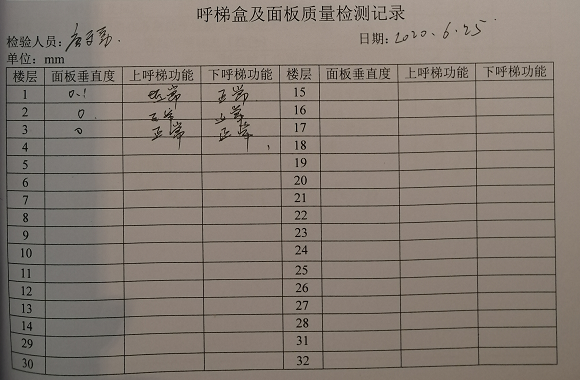 呼梯盒及面板质量检测记录
检验人员: 日期: 2020.6.25
单位: mm
楼层 面板垂直度 上呼梯功能 下呼梯功能 楼层 面板垂直度 上呼梯功能 下呼梯功能
1 0.1 正常 正常 15
2 0 正常 正常 16
3 0 正常 正常 17
4 18
5 19
6 20
7 21
8 22
9 23
10 24
11 25
12 26
13 27
14 28
29 31
30 32